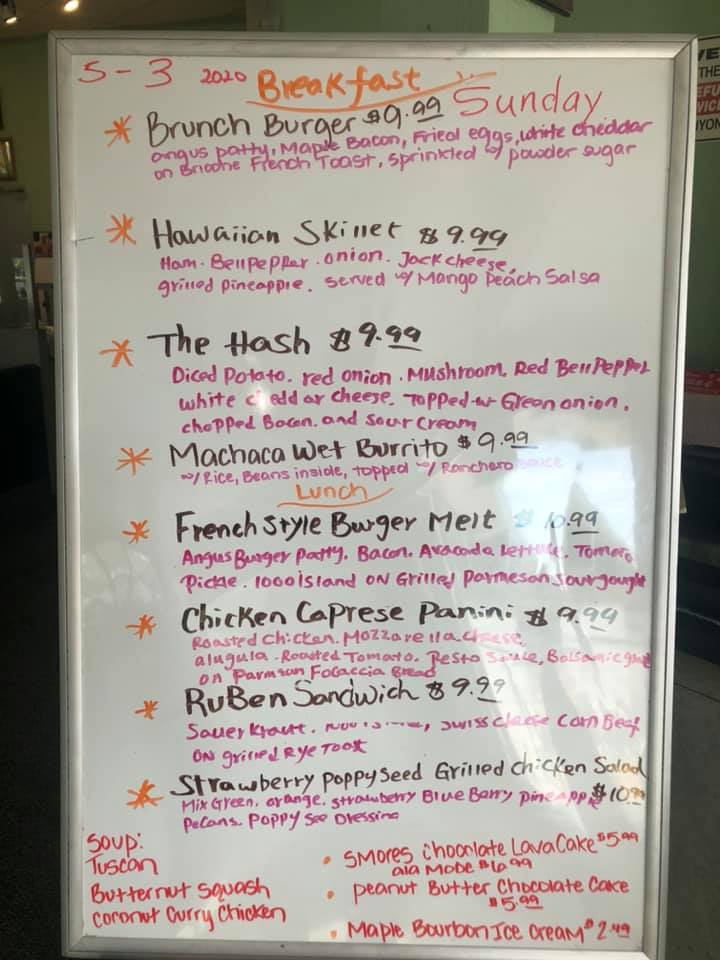 5-3 2020 Breakfast
Sunday
* Brunch Burger $9.99
angus patty, Maple Bacon, Fried eggs, white cheddar
on Brioche French Toast, sprinkled w/ powder sugar
* Hawaiian Skillet $9.99
Ham. Bell Pepper. onion. Jack cheese,
grilled pineapple. served w/ Mango Peach Salsa
* The Hash $9.99
Diced Potato. red onion. Mushroom. Red Bell Pepper
white cheddar cheese. Topped w Green onion.
chopped Bacon. and Sour cream
* Machaca Wet Burrito $9.99
w/ Rice, Beans inside, topped w/ Ranchero Sauce
Lunch
* French Style Burger Melt $10.99
Angus Burger patty. Bacon. Avacado Lettuce. Tomato
Pickle. 1000 Island ON Grilled Parmesan Sourdough
* Chicken Caprese Panini $9.99
Roasted Chicken. Mozzarella cheese,
alugula. Roasted Tomato. Pesto Sauce, Balsamic
on Parmsan Focaccia Bread
* RuBen Sandwich $9.99
Sauer Kraut. swiss cheese Corn Beef
ON grilled Rye Toast
* Strawberry Poppyseed Grilled Chicken Salad
Mix Green. orange. strawberry Blue Berry pineapple $10.99
Pecans. Poppy See Dressing
Soup:
Tuscan
Butternut Squash
Coconut Curry Chicken
• SMores Chocolate Lava Cake $5.99
ala Mode $6.99
• peanut Butter Chocolate Cake
$5.99
• Maple Bourbon Ice Cream $2.49